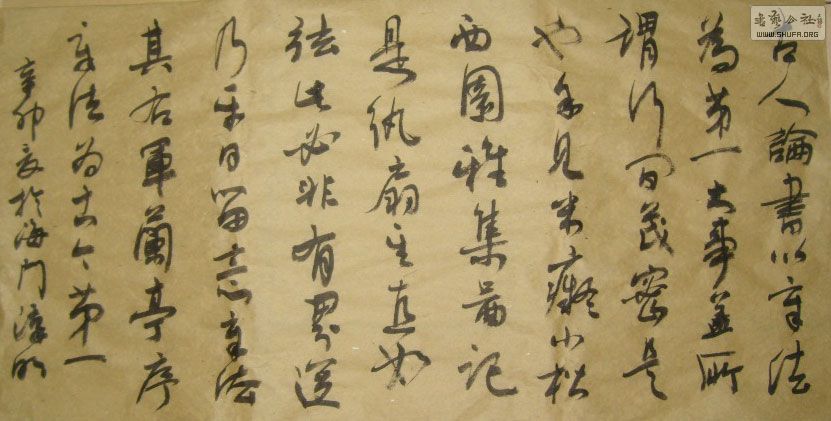 古人論書以章法
為第一大事蓋所
謂行間茂密是
也余見米癡小楷
西園雅集圖記
是紈扇其直如
弦此必非有
乃平日留意章法
其右軍蘭亭序
章法為古今第一
辛卯夏於海門
書藝公社
WWW.SHUFA.ORG